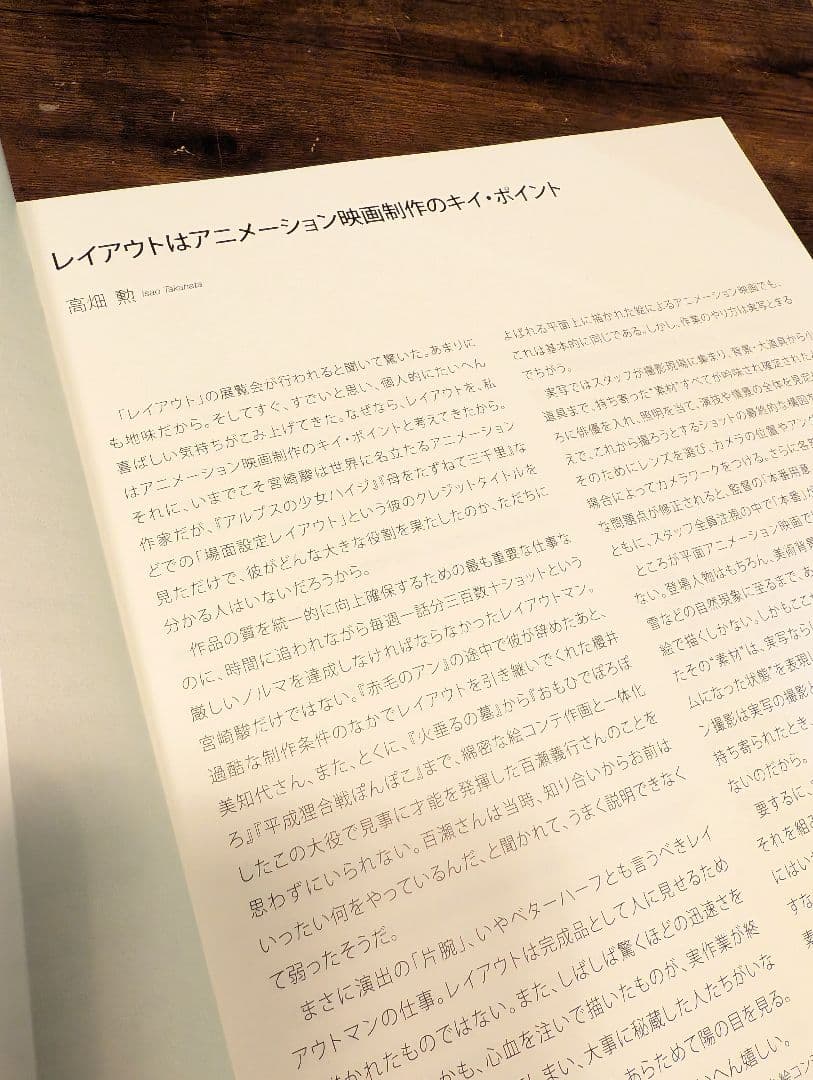 レイアウトはアニメーション映画制作のキイ・ポイント
高畑 勲 Isao Takahata
「レイアウト」の展覧会が行われると聞いて驚いた。あまりに
も地味だから。そしてすぐ、すごいと思い、個人的にたいへん
喜ばしい気持ちがこみ上げてきた。なぜなら、レイアウトを、私
はアニメーション映画制作のキイ・ポイントと考えてきたから。
それに、いまでこそ宮崎駿は世界に名立たるアニメーション
作家だが、『アルプスの少女ハイジ』『母をたずねて三千里』な
どでの「場面設定レイアウト」という彼のクレジットタイトルを
見ただけで、彼がどんな大きな役割を果たしたのか、ただちに
分かる人はいないだろうから。
作品の質を統一的に向上確保するための最も重要な仕事な
のに、時間に追われながら毎週一話分三百数十ショットという
厳しいノルマを達成しなければならなかったレイアウトマン。
宮崎駿だけではない。『赤毛のアン』の途中で彼が辞めたあと、
過酷な制作条件のなかでレイアウトを引き継いでくれた櫻井
美知代さん、また、とくに、『火垂るの墓』から『おもひでぽろぽ
ろ』『平成狸合戦ぽんぽこ』まで、綿密な絵コンテ作画と一体化
したこの大役で見事に才能を発揮した百瀬義行さんのことを
思わずにいられない。百瀬さんは当時、知り合いからお前は
いったい何をやっているんだ、と聞かれて、うまく説明できなく
て弱ったそうだ。
まさに演出の「片腕」、いやベターハーフとも言うべきレイ
アウトマンの仕事。レイアウトは完成品として人に見せるため
かれたものではない。また、しばしば驚くほどの迅速さを
かも、心血を注いで描いたものが、実作業が終
しまい、大事に秘蔵した人たちがいな
あらためて陽の目を見る。
いへん嬉しい。
よばれる平面上に描かれた絵によるアニメーション映画でも、
これは基本的に同じである。しかし、作業のやり方は実写とまる
でちがう。
実写ではスタッフが撮影現場に集まり、背景・大道具から小
道具まで、持ち寄った“素材”すべてが吟味され確定された
ろに俳優を入れ、照明を当て、演技や情景の全体を見定
えて、これから撮ろうとするショットの最終的な構図を
そのためにレンズを選び、カメラの位置やアング
場合によってカメラワークをつける。さらに各
な問題点が修正されると、監督の「本番用意
ともに、スタッフ全員注視の中で「本番」が
ところが平面アニメーション映画で
ない。登場人物はもちろん、美術背景
雪などの自然現象に至るまで、あ
絵で描くしかない。しかもここ
たその“素材”は、実写なら
ムになった状態”を表現
ン撮影は実写の撮影と
持ち寄られたとき、
ないのだから。
要するに、
それを組
にはい
すな
素
絵コンテ